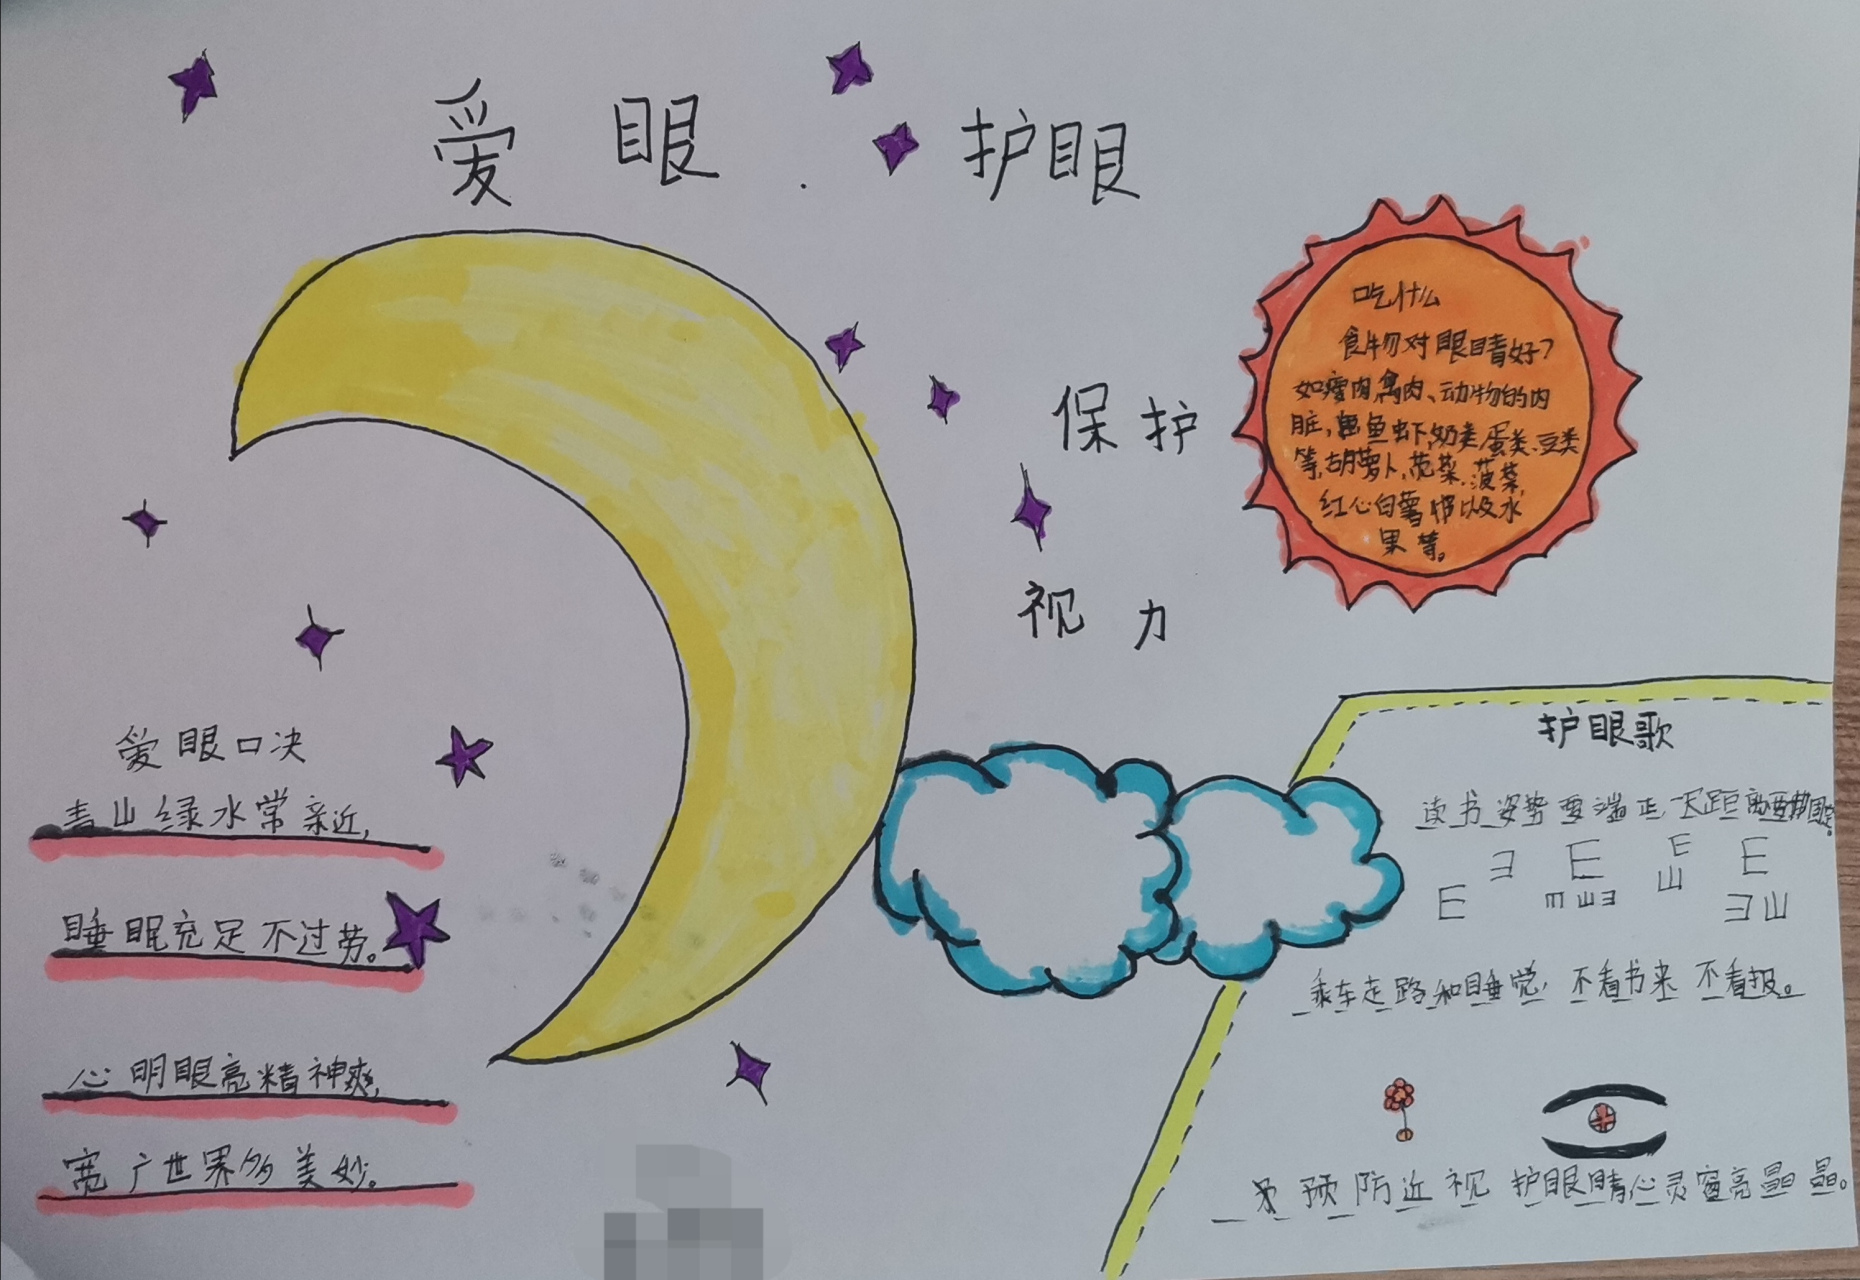 爱眼 护眼
保护
视力
吃什么
食物对眼睛好?
如瘦肉,禽肉、动物的内
脏,鱼虾,奶类,蛋类、豆类
等,胡萝卜,苋菜、菠菜,
红心白薯 以及水
果等。
爱眼口决
青山绿水常亲近,
睡眠充足不过劳。
心明眼亮精神爽,
宽广世界多美妙。
护眼歌
读书姿势要端正,距离要
E E E E
山 E
E m 山 E E 山
乘车走路和睡觉,不看书来不看报。
预防近视 护眼睛心灵窗亮晶晶。